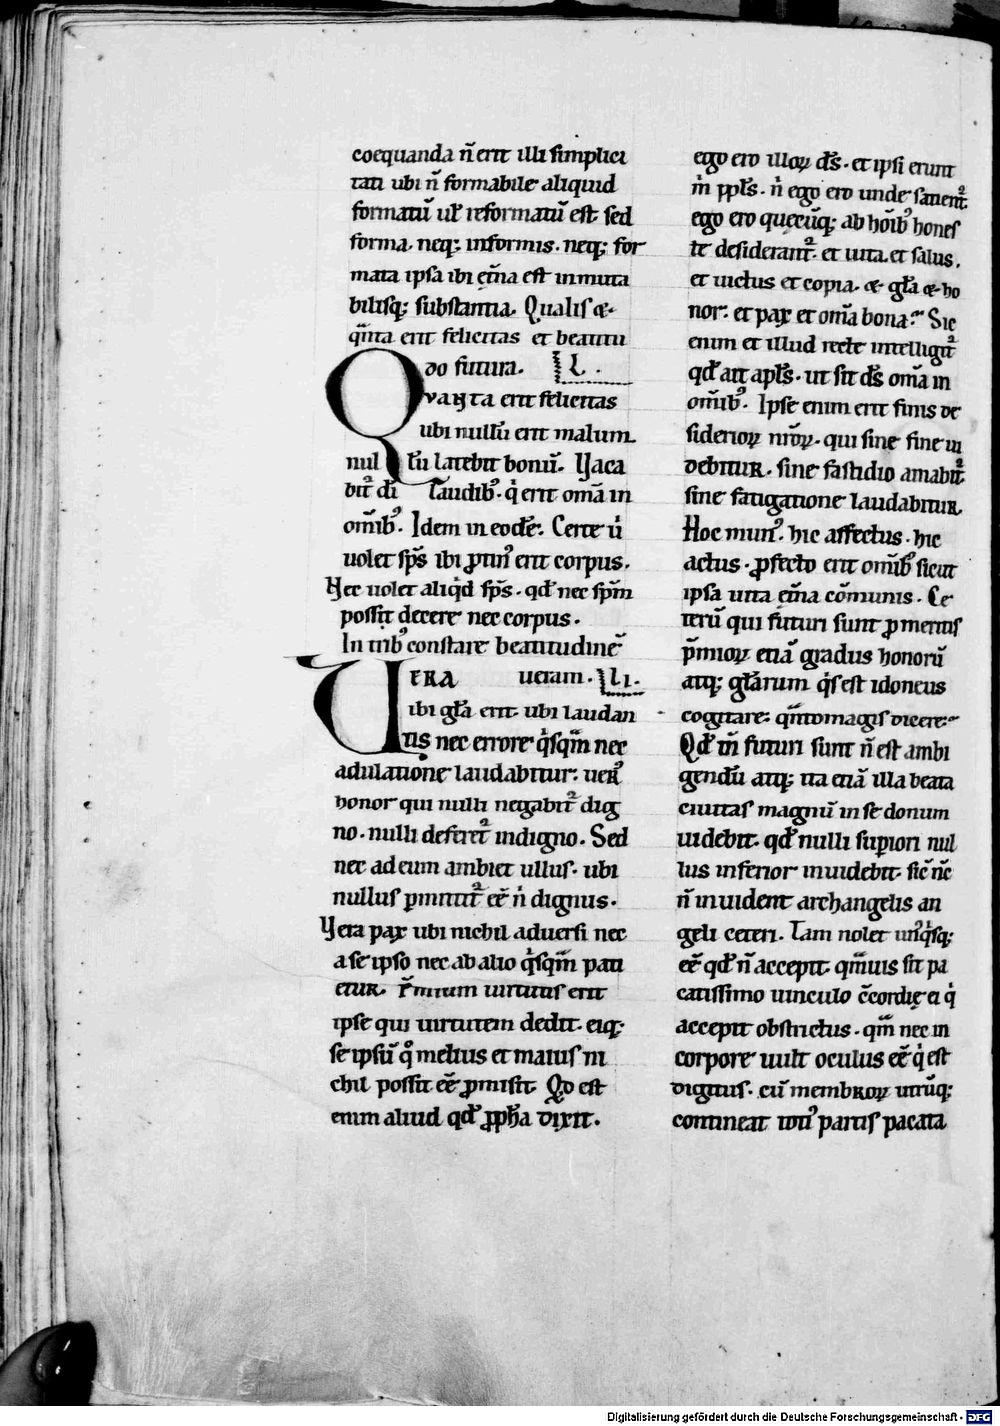 coequanda n̄ erit illi simplici
tati ubi n̄ formabile aliquid
formatū ul̓ reformatū est. sed
forma. neq; informis. neq; for
mata ipsa ibi et̄na est inmuta
bilisq; substantia. Qualis &
qn̄ta erit felicitas et beatitu
do futura. L.
Qvanta erit felicitas
ubi nullū erit malum
nullū latebit bonū. Vaca
bit² di laudib᾿. q̇ erit om̄a in
om̄ib᾿. Idem in eodē. Certe u̇
uolet sp̄s ibi ꝓtin᾿ erit corpus.
Nec uolet aliq̇d sp̄s. qd̄ nec sp̄m
possit decere nec corpus.
In trib᾿ constare beatitudinē
VERA ueram. LI.
ibi gl̄a erit. ubi laudan
tis nec errore q̇sqm̄ nec
adulatione laudabitur. uer᾿
honor qui nulli negabit² dig
no. nulli deferet² indigno. Sed
nec ad eum ambiet ullus. ubi
nullus ꝑmittit² eē n̓ dignus.
Vera pax ubi nichil aduersi nec
a se ipso nec ab alio q̇sqm̄ pati
etur. P̄mium uirtutis erit
ipse qui uirtutem dedit. eiq;
se ipsū q̊ melius et maius ni
chil possit eē ꝓmisit. Qd est
enim aliud qd̄ ꝓph̄a dixit.
ego ero illoꝝ ds̄. et ipsi erunt
m̓ ppls̄. n̓ ego ero unde sarient²
ego ero quęcūq; ab hoīb᾿ hones
te desiderant². et uita. et salus.
et uictus et copia. & gl̄a & ho
nor. et pax et om̄a bona. Sic
enim et illud recte intelligit²
qd̄ ait apls̄. ut sit ds̄ om̄a in
om̄ib᾿. Ipse enim erit finis de
siderioꝝ nr̄oꝝ. qui sine fine ui
debitur. sine fastidio amabit²
sine fatigatione laudabitur.
Hoc mun᾿. hic affectus. hic
actus. ꝓfecto erit om̄ib᾿ sicut
ipsa uita et̄na cōmunis. Ce
terū qui futuri sunt ꝓ meritis
p̄mioꝝ etiā gradus honorū
atq; gl̄arum q̇s est idoneus
cogitare. qn̄tomagis dicere.
Qd̄ tn̄ futuri sunt n̄ est ambi
gendū atq; ita etiā illa beata
ciuitas magnū in se donum
uidebit. qd̄ nulli supiori nul
lus inferior inuidebit. sic̄ nc̄
n̄ inuident archangelis an
geli ceteri. Tam nolet un᾿q̇sq;
eē qd̄ n̄ accepit. qm̄uis sit pa
catissimo uinculo c̄cordię ei q̇
accepit obstrictus. qm̄ nec in
corpore uult oculus eē q̇ est
digitus. cū membroꝝ utrūq;
contineat toti᾿ partis pacata
Digitalisierung gefördert durch die Deutsche Forschungsgemeinschaft - DFG